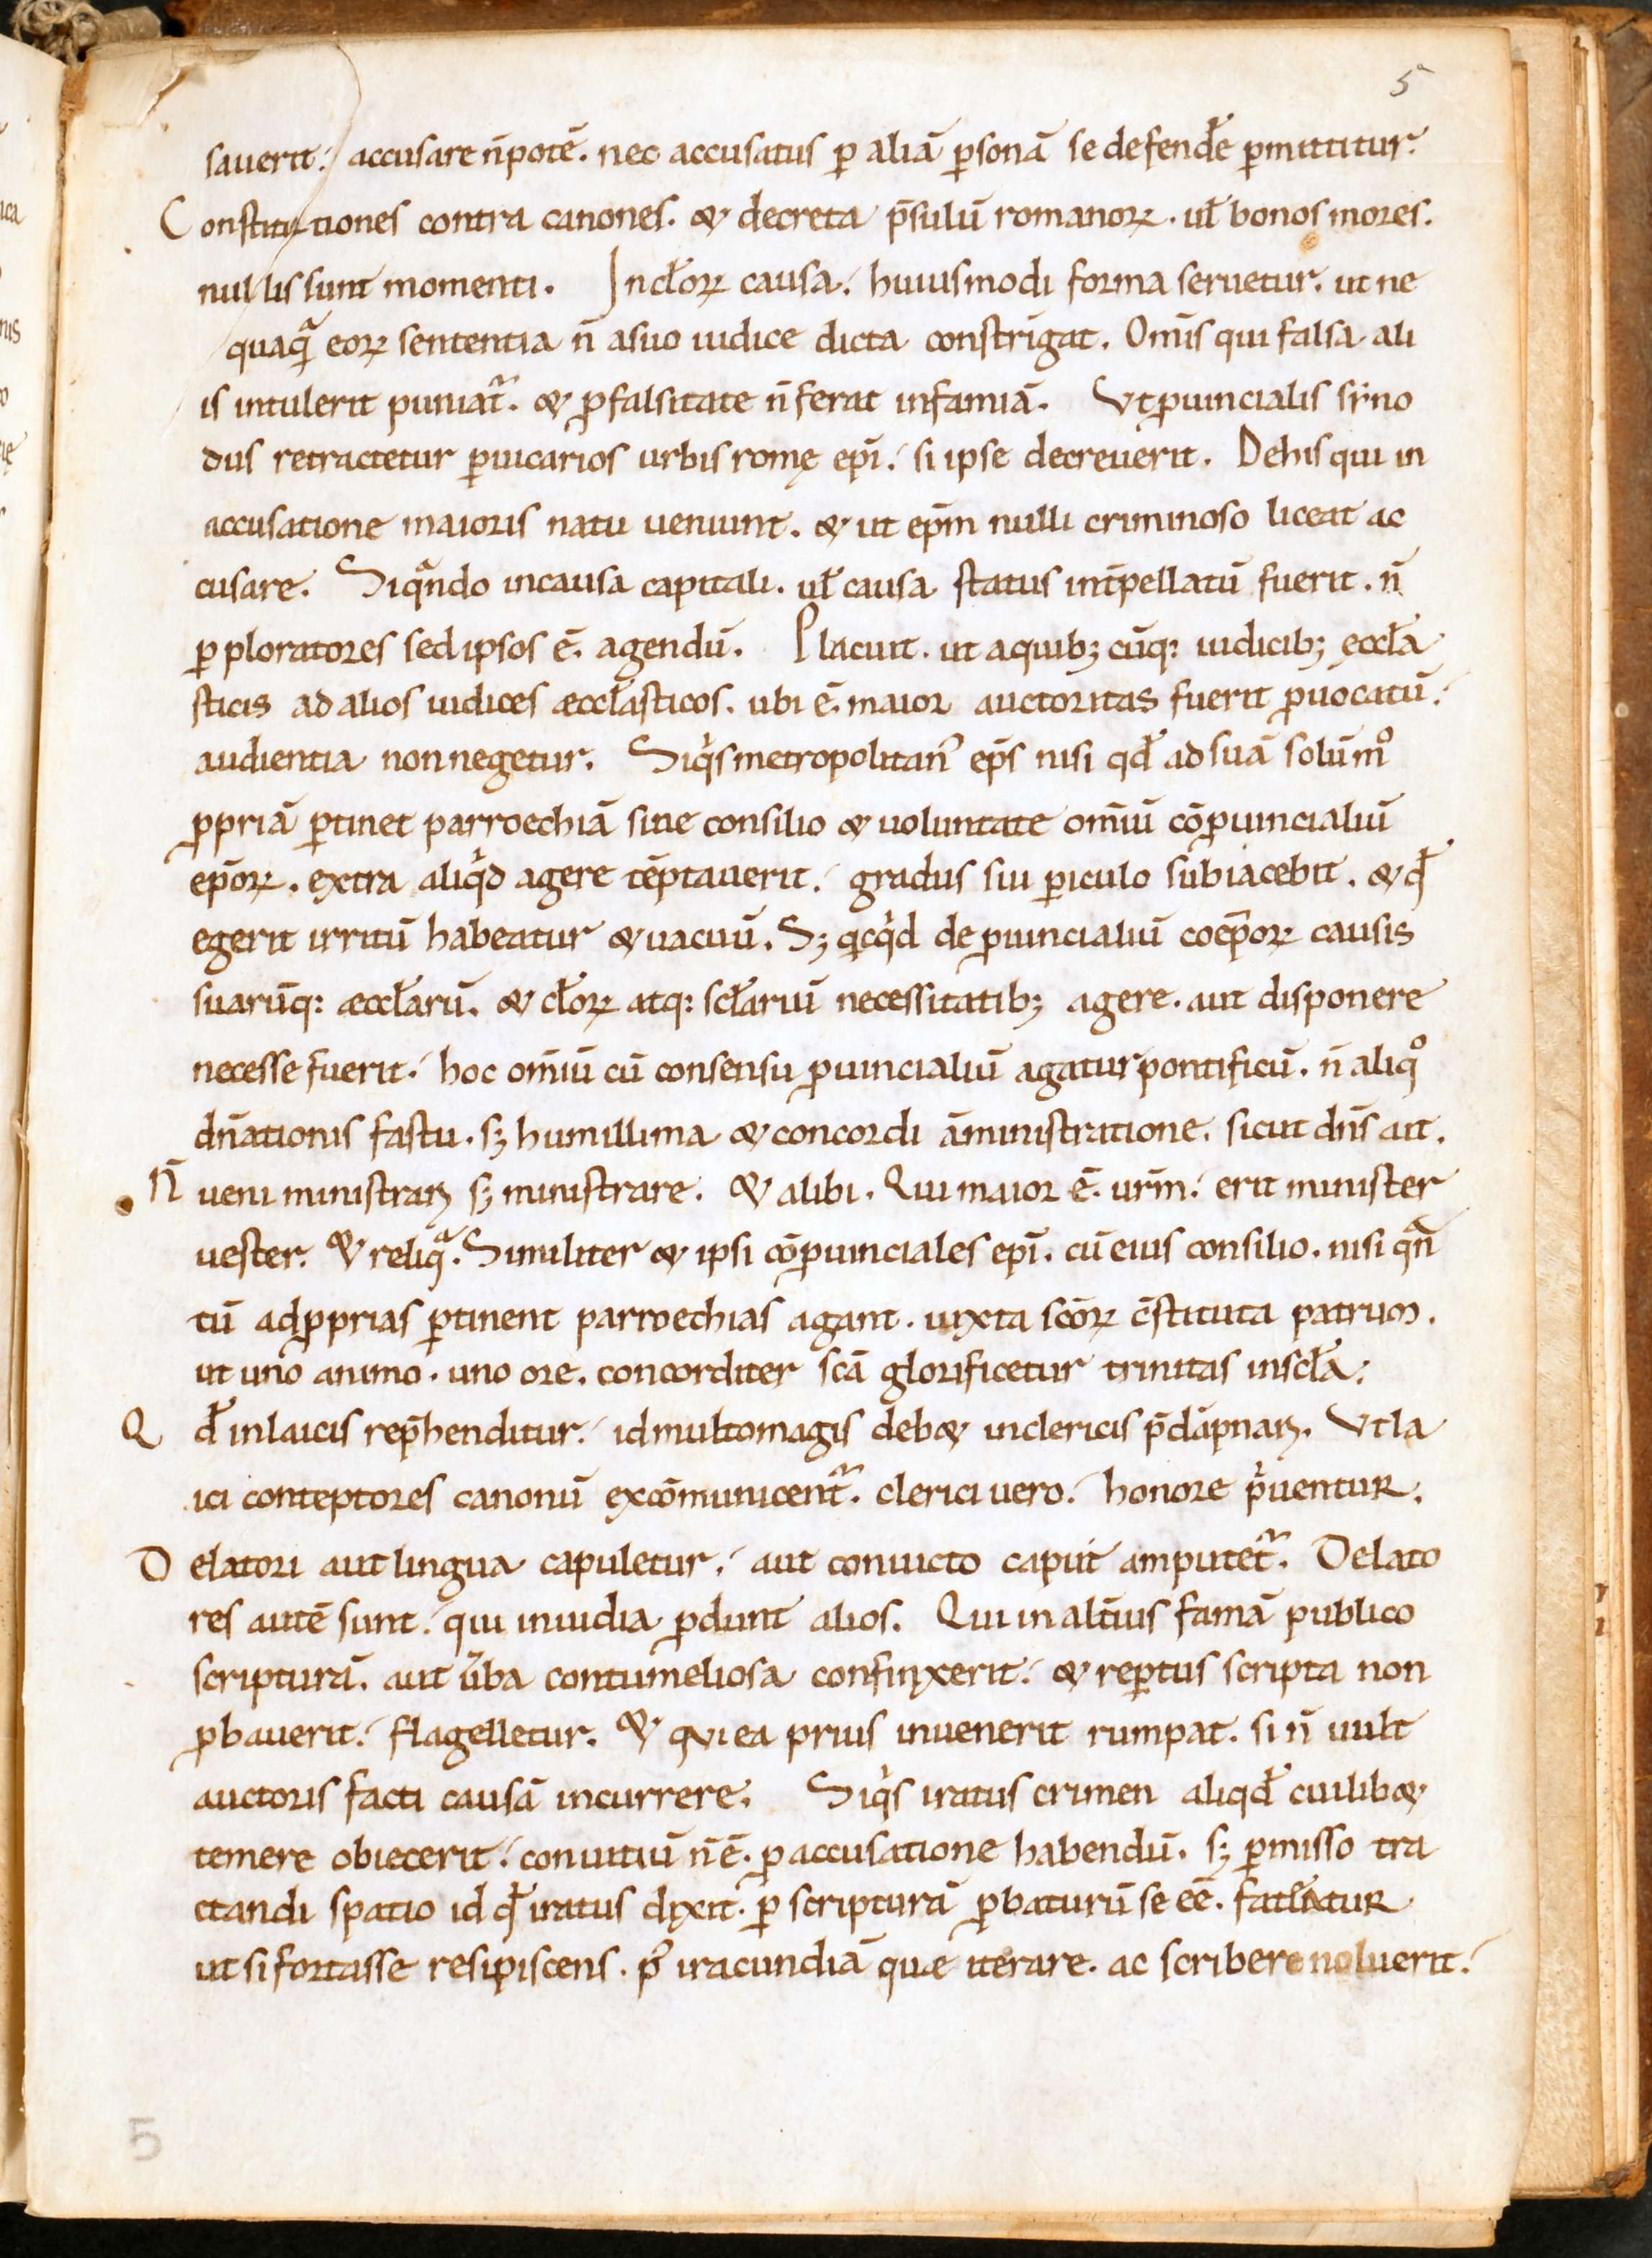 5
sauerit: accusare n̄ potē. nec accusatus ꝑ aliā ꝑsonā se defendꝉe ꝑmittitur.
Constitutiones contra canones. & decreta p̄sulū romanoꝝ. uꝉ bonos mores.
nullis sunt momenti. In cꝉoꝝ causa. huiusmodi forma seruetur. ut ne
quaqͣ eoꝝ sententia n̄ asuo iudice dicta constrīgat. Om̄is qui falsa ali
is intulerit puniat᷑. & ꝓ falsitate n̄ ferat infamiā. Vt ꝓuincialis sẏno
dus retractetur ꝑ uicarios urbis romę ep̄i. si ipse decreuerit. De his qui in
accusatione maioris natu ueniunt. & ut ep̄m nulli criminoso liceat ac
cusare. Siqͣndo in causa capitali. uꝉ causa status int̄pellatū fuerit. n̄
ꝑ ploratores sed ipsos ē agendū. Placuit. ut a quibꝫ cūqꝫ iudicibꝫ eccꝉa
sticis ad alios iudices æccꝉasticos. ubi ē maior auctoritas fuerit ꝓuocatū.
audientia non negetur. Siqͥs metropolitanꝰ ep̄s nisi qdꝉ ad suā solūmͦ
ꝓpriā ꝑtinet parroechiā sine consilio & uoluntate om̄iū cōꝓuincialiū
ep̄oꝝ. extra aliqͥd agere tēptauerit. gradus sui ꝑiculo subiacebit. & qꝉ
egerit irritū habeatur & uacuū. Sꝫ qͥcqͥd de ꝓuincialiū coep̄oꝝ causis
suarūqꝫ æccꝉarū. & cꝉoꝝ atqꝫ scꝉariū necessitatibꝫ agere. aut disponere
necesse fuerit. hoc om̄iū cū consensu ꝓuincialiū agatur pontificū. n̄ aliqͦ
dn̄ationis fastu. sꝫ humillima & concordi āministratione. sicut dn̄s ait.
N̄ ueni ministraꝝ sꝫ ministrare. & alibi. Qui maior ē ur̄m. erit minister
uester. & reliqͣ. Similiter & ipsi cōꝓuinciales ep̄i. cū eius consilio. nisi qͣn
tū ad ꝓprias ꝑtinent parroechias agant. iuxta sc̄oꝝ c̄stituta patrum.
ut uno animo. uno ore. concorditer sc̄a glorificetur trinitas in scꝉa.
Qdꝉ in laicis rep̄henditur. id multo magis deb& in clericis p̄dāpnaꝝ. Vt la
ici conteptores canonū excōmunicent᷑. clerici uero. honore pͥuentur.
Delatori aut lingua capuletur. aut conuicto caput amputet᷑. Delato
res autē sunt. qui inuidia ꝓdunt alios. Qui in alt̄ius famā publico
scripturā. aut ūba contumeliosa confinxerit. & reꝑtus scripta non
ꝓbauerit. flagelletur. & qui ea prius inuenerit rumpat. si n̄ uult
auctoris facti causā incurrere. Siqͥs iratus crimen aliqdꝉ cuilib&
temere obiecerit. conuitiū n̄ ē ꝓ accusatione habendū. sꝫ ꝑmisso tra
ctandi spatio id qꝉ iratus dixit. ꝑ scripturā ꝓbaturū se eē. fateatur
ut si fortasse resipiscens. pꝰ iracundiā quæ iterare. ac scribere noluerit.
5